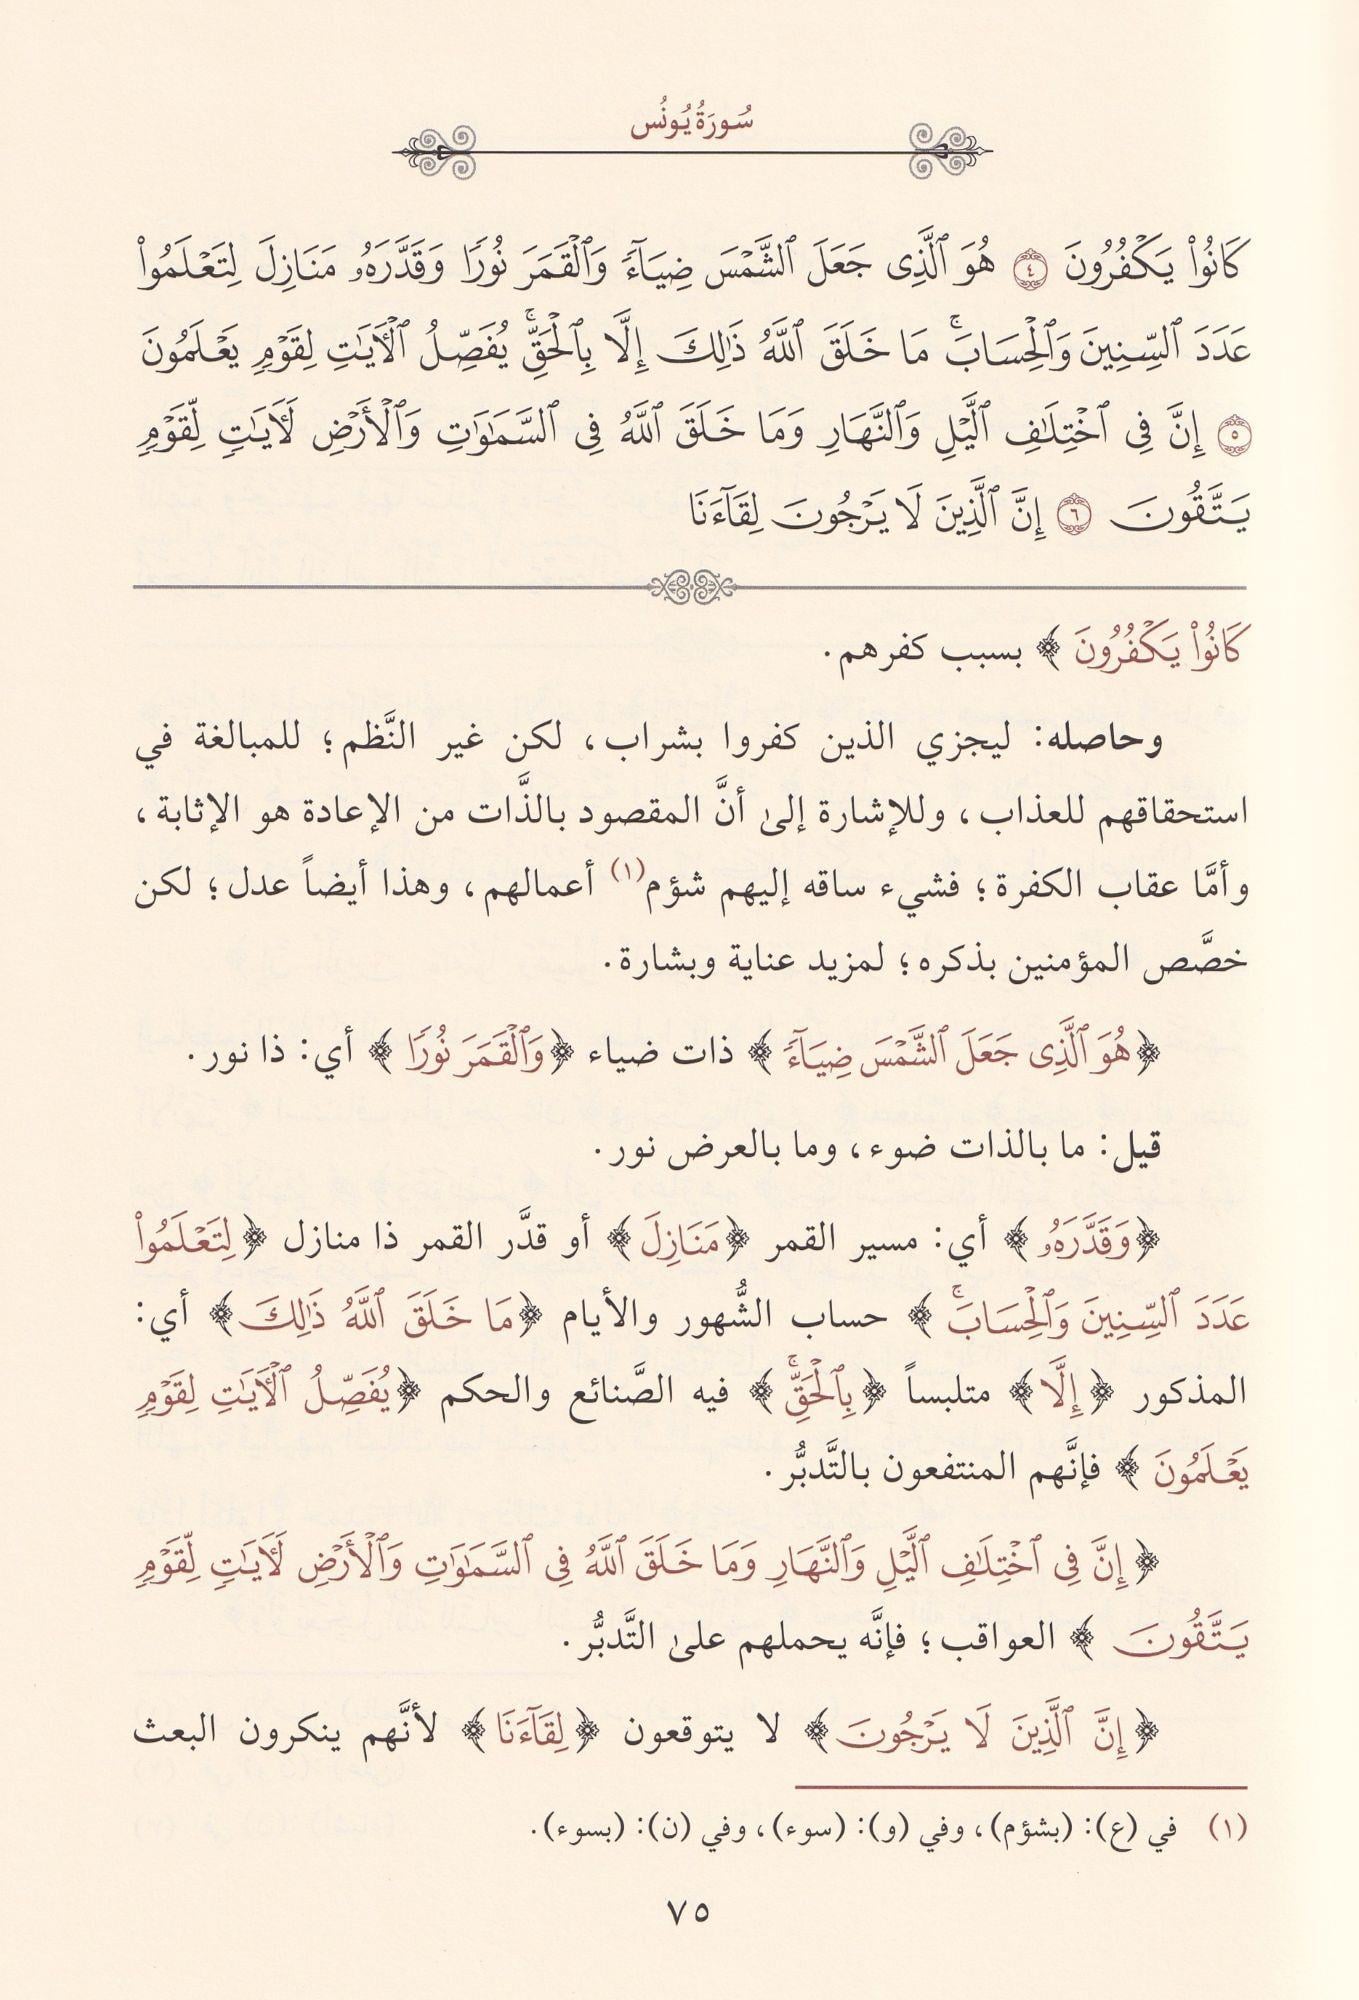 سُورَةُ يُونُس
كَانُوا۟ يَكْفُرُونَ ٤ هُوَ ٱلَّذِى جَعَلَ ٱلشَّمْسَ ضِيَآءً وَٱلْقَمَرَ نُورًا وَقَدَّرَهُۥ مَنَازِلَ لِتَعْلَمُوا۟
عَدَدَ ٱلسِّنِينَ وَٱلْحِسَابَ ۚ مَا خَلَقَ ٱللَّهُ ذَٰلِكَ إِلَّا بِٱلْحَقِّ ۚ يُفَصِّلُ ٱلْـَٔايَـٰتِ لِقَوْمٍ يَعْلَمُونَ
٥ إِنَّ فِى ٱخْتِلَـٰفِ ٱلَّيْلِ وَٱلنَّهَارِ وَمَا خَلَقَ ٱللَّهُ فِى ٱلسَّمَـٰوَٰتِ وَٱلْأَرْضِ لَـَٔايَـٰتٍ لِّقَوْمٍ
يَتَّقُونَ ٦ إِنَّ ٱلَّذِينَ لَا يَرْجُونَ لِقَآءَنَا
كَانُوا۟ يَكْفُرُونَ ﴾ بسبب كفرهم.
وحاصله: ليجزي الذين كفروا بشراب، لكن غير النَّظم؛ للمبالغة في
استحقاقهم للعذاب، وللإشارة إلىٰ أنَّ المقصود بالذَّات من الإعادة هو الإثابة،
وأمَّا عقاب الكفرة؛ فشيء ساقه إليهم شؤم(١) أعمالهم، وهذا أيضاً عدل؛ لكن
خصَّص المؤمنين بذكره؛ لمزيد عناية وبشارة.
﴿ هُوَ ٱلَّذِى جَعَلَ ٱلشَّمْسَ ضِيَآءً ﴾ ذات ضياء ﴿ وَٱلْقَمَرَ نُورًا ﴾ أي: ذا نور.
قيل: ما بالذات ضوء، وما بالعرض نور.
﴿ وَقَدَّرَهُۥ ﴾ أي: مسير القمر ﴿ مَنَازِلَ ﴾ أو قدَّر القمر ذا منازل ﴿ لِتَعْلَمُوا۟
عَدَدَ ٱلسِّنِينَ وَٱلْحِسَابَ ۚ ﴾ حساب الشُّهور والأيام ﴿ مَا خَلَقَ ٱللَّهُ ذَٰلِكَ ﴾ أي:
المذكور ﴿ إِلَّا ﴾ متلبساً ﴿ بِٱلْحَقِّ ۚ ﴾ فيه الصَّنائع والحكم ﴿ يُفَصِّلُ ٱلْـَٔايَـٰتِ لِقَوْمٍ
يَعْلَمُونَ ﴾ فإنَّهم المنتفعون بالتَّدبُّر.
﴿ إِنَّ فِى ٱخْتِلَـٰفِ ٱلَّيْلِ وَٱلنَّهَارِ وَمَا خَلَقَ ٱللَّهُ فِى ٱلسَّمَـٰوَٰتِ وَٱلْأَرْضِ لَـَٔايَـٰتٍ لِّقَوْمٍ
يَتَّقُونَ ﴾ العواقب؛ فإنَّه يحملهم علىٰ التَّدبُّر.
﴿ إِنَّ ٱلَّذِينَ لَا يَرْجُونَ ﴾ لا يتوقعون ﴿ لِقَآءَنَا ﴾ لأنَّهم ينكرون البعث
(١) في (ع): (بشؤم)، وفي (و): (سوء)، وفي (ن): (بسوء).
٧٥